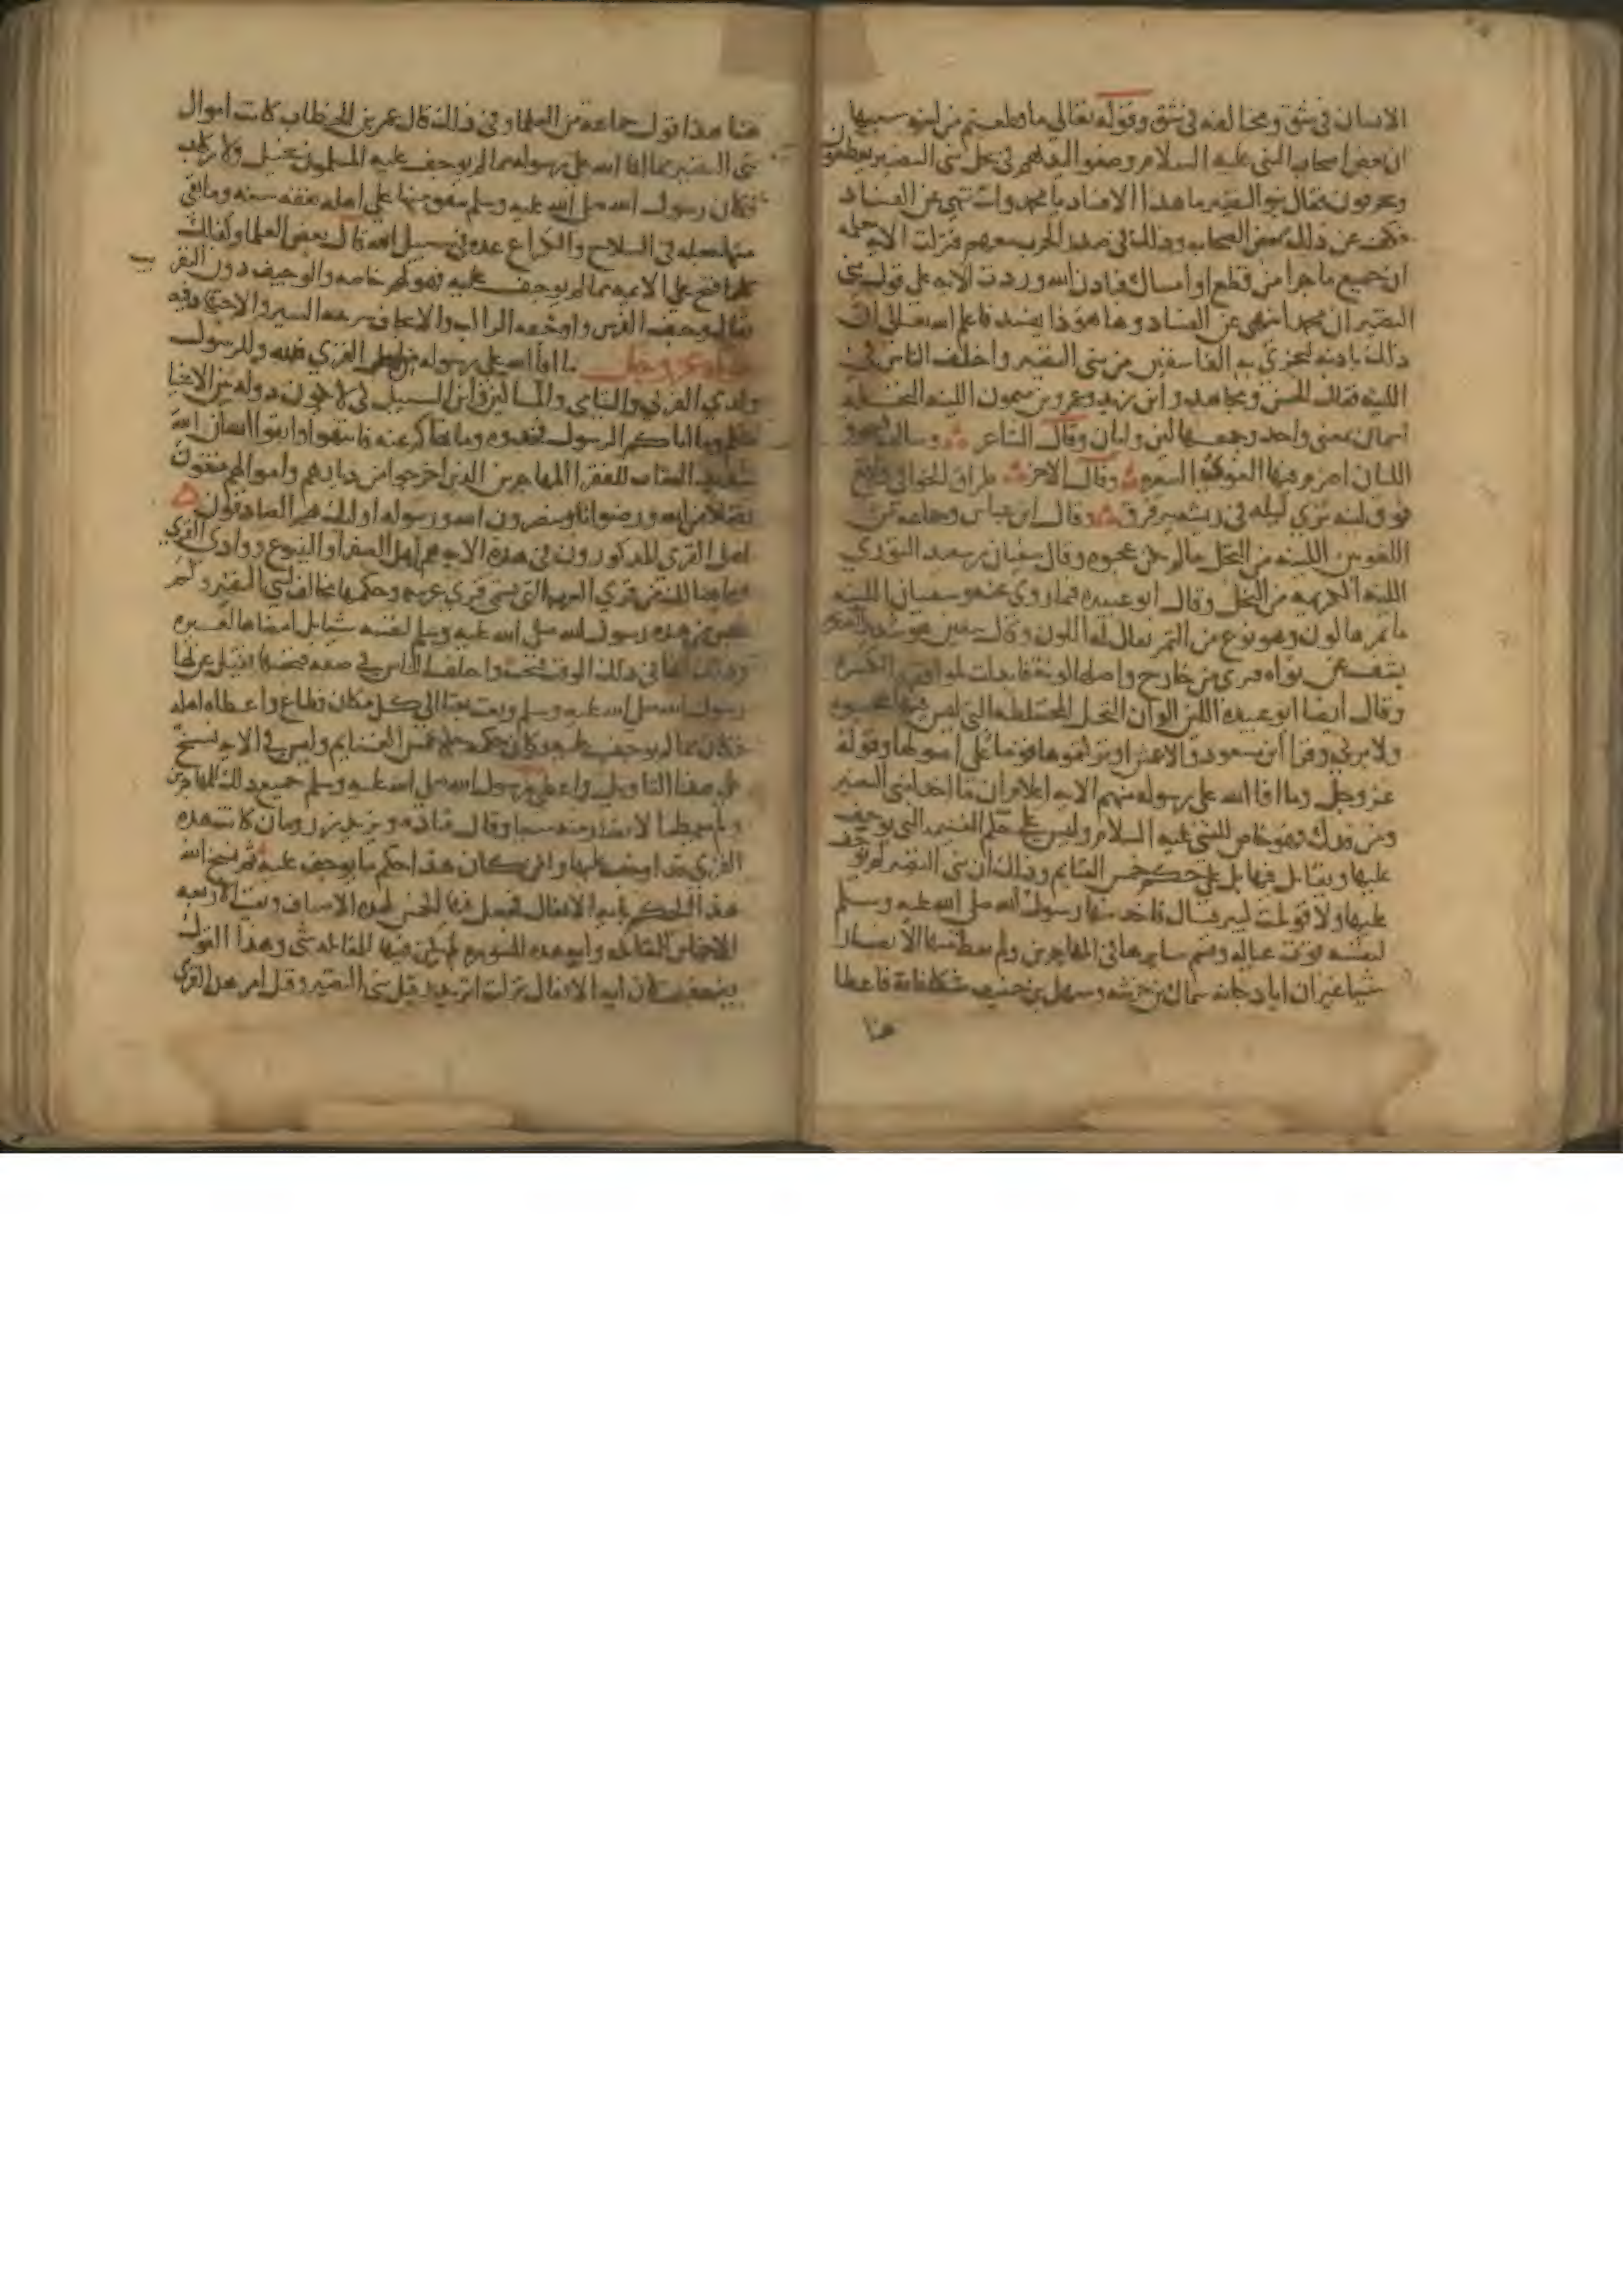 الانسان في شق ومخالفه في شق وقوله تعالى ما قطعتم من لينه سببها
ان بعض اصحاب النبي عليه السلام وضعوا ايديهم في نخل بني النضير يقطعون
ويحرقون فقال بنو النضير ما هذا الافساد يا محمد وانت تنهى عن الفساد
فكف عن ذلك بعض الصحابه وذلك في صدر الحرب معهم فنزلت الايه
ان جميع ما جرا من قطع او امساك فباذن الله وردت الايه على قول بني
النضير ان محمدا ينهى عن الفساد وها هو ذا يفسد فاعلم الله تعالى ان
ذلك باذنه ليخزي به الفاسقين من بني النضير واختلف الناس في
اللينه فقال الحسن ومجاهد وابن زيد وعمرو بن ميمون اللينه النخله
اسمان بمعنى واحد وجمعها لين وليان وقال الشاعر وسالفه
الليان اضرم فيها الغوي السعر وقال الاخر طراق الخوافي واقع
فوق لينه ندي ليله في ريشه يترقرق وقال ابن عباس وجماعه من
اللغويين اللينه من النخل ما لم يكن عجوه وقال سفيان بن سعيد الثوري
اللينه الكريمه من النخل وقال ابو عبيده فيما روي عنه وسفيان اللينه
ما تمرها لون وهو نوع من التمر يقال له اللون وقال سفين هو شديد الصفره
يشف عن نواه فيرى من خارج واصلها لونه فابدلت لموافقه الكسره
وقال ايضا ابو عبيده اللين الوان النخل المختلطه التي ليس فيها عجوه
ولا برني وقرا ابن مسعود والاعمش او تركتموها قوما على اصولها وقوله
عز وجل وما افا الله على رسوله منهم الايه اعلام ان ما اخذ لبني النضير
ومن فدك فهو خاص للنبي عليه السلام وليس على حكم الغنيمه التي يوجف
عليها ويقاتل فيها بل على حكم خمس الغنايم وذلك ان بني النضير لم يوجف
عليها ولا قوتلت كبير قتال فاخذ منها رسول الله صلى الله عليه وسلم
لنفسه قوت عياله وقسم سايرها في المهاجرين ولم يعط منها الانصار
شيا غير ان ابا دجانه سماك بن خرشه وسهل بن حنيف شكيا فاقة فاعطا
هنا
هنا هذا قول جماعه من العلما وفي ذلك قال عمر بن الخطاب كانت اموال
بني النضير مما افا الله على رسوله مما لم يوجف عليه المسلمون بخيل ولا ركاب
فكان رسول الله صلى الله عليه وسلم ينفق منها على اهله نفقه سنه وما بقي
منها جعله في السلاح والكراع عده في سبيل الله قال بعض العلما وكذلك
كلما فتح على الايمه مما لم يوجف عليه فهو لهم خاصه والوجيف دون التقريب
يقال وجف الفرس واوجفه الراكب والايجاف سرعه السير والاجتهاد فيه
ما افا الله على رسوله من اهل القري فلله وللرسول
ولذي القربي واليتامي والمساكين وابن السبيل كي لا يكون دوله بين الاغنيا
منكم وما اتاكم الرسول فخذوه وما نهاكم عنه فانتهوا واتقوا الله ان الله
شديد العقاب للفقرا المهاجرين الذين اخرجوا من ديارهم واموالهم يبتغون
فضلا من الله ورضوانا وينصرون الله ورسوله اولئك هم الصادقون
اهل القري المذكورون في هذه الايه هم اهل الصفرا والينبوع ووادي القري
وما هنالك من قري العرب التي تسمى قري عربيه وحكمها مخالف لبني النضير ولم
يحبس من هذه رسول الله صلى الله عليه وسلم لنفسه شيا بل امضاها لغيره
وذلك انها في ذلك الوقت فتحت واختلف الناس في صفه فتحها فقيل
رسول الله صلى الله عليه وسلم وبعث بعثا الى كل مكان فطاع واعطاه اهله
فكان مما لم يوجف عليه وكان حكمه حكم خمس الغنايم وليس في الايه نسخ
على هذا التاويل واعطى رسول الله صلى الله عليه وسلم جميع ذلك للمهاجرين
ولم يعط الانصار منه شيا وقال قتاده ويزيد بن رومان كانت هذه
القري قد اوجف عليها ولكن كان هذا حكم ما يوجف عليه ثم نسخ الله
هذا الحكم بايه الانفال فجعل فيها الخمس لهذه الاصناف وبقيت الاربعه
الاخماس للمقاتله وايه هذه السوره لم يكن فيها للمقاتله شي وهذا القول
يضعف لان ايه الانفال نزلت اثر بدر قبل بني النضير وقبل امر هذه القري